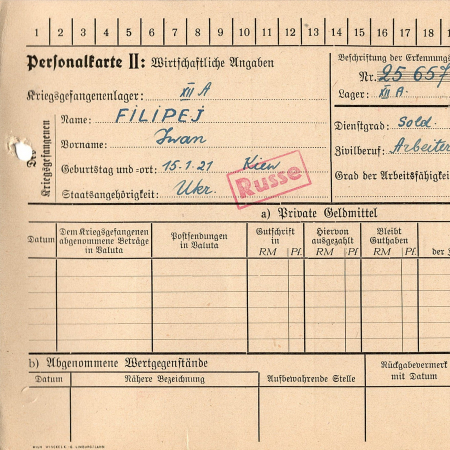 1 2 3 4 5 6 7 8 9 10 11 12 13 14 15 16 17 18
Personalkarte II: Wirtschaftliche Angaben
Beschriftung der Erkennungs
Nr. 25 657
Kriegsgefangenenlager: XII A
Lager: XII A.
Des Kriegsgefangenen
Name: FILIPEJ
Vorname: Iwan
Dienstgrad: Sold.
Geburtstag und =ort: 15.1.21 Kiew
Zivilberuf: Arbeiter
Staatsangehörigkeit: Ukr.
Grad der Arbeitsfähigkei
Russe
a) Private Geldmittel
Datum
Dem Kriegsgefangenen
abgenommene Beträge
in Valuta
Postsendungen
in Valuta
Gutschrift
in
RM Pf.
Hiervon
ausgezahlt
RM Pf.
Bleibt
Guthaben
RM Pf.
der
b) Abgenommene Wertgegenstände
Rückgabevermerk
mit Datum
Datum
Nähere Bezeichnung
Aufbewahrende Stelle